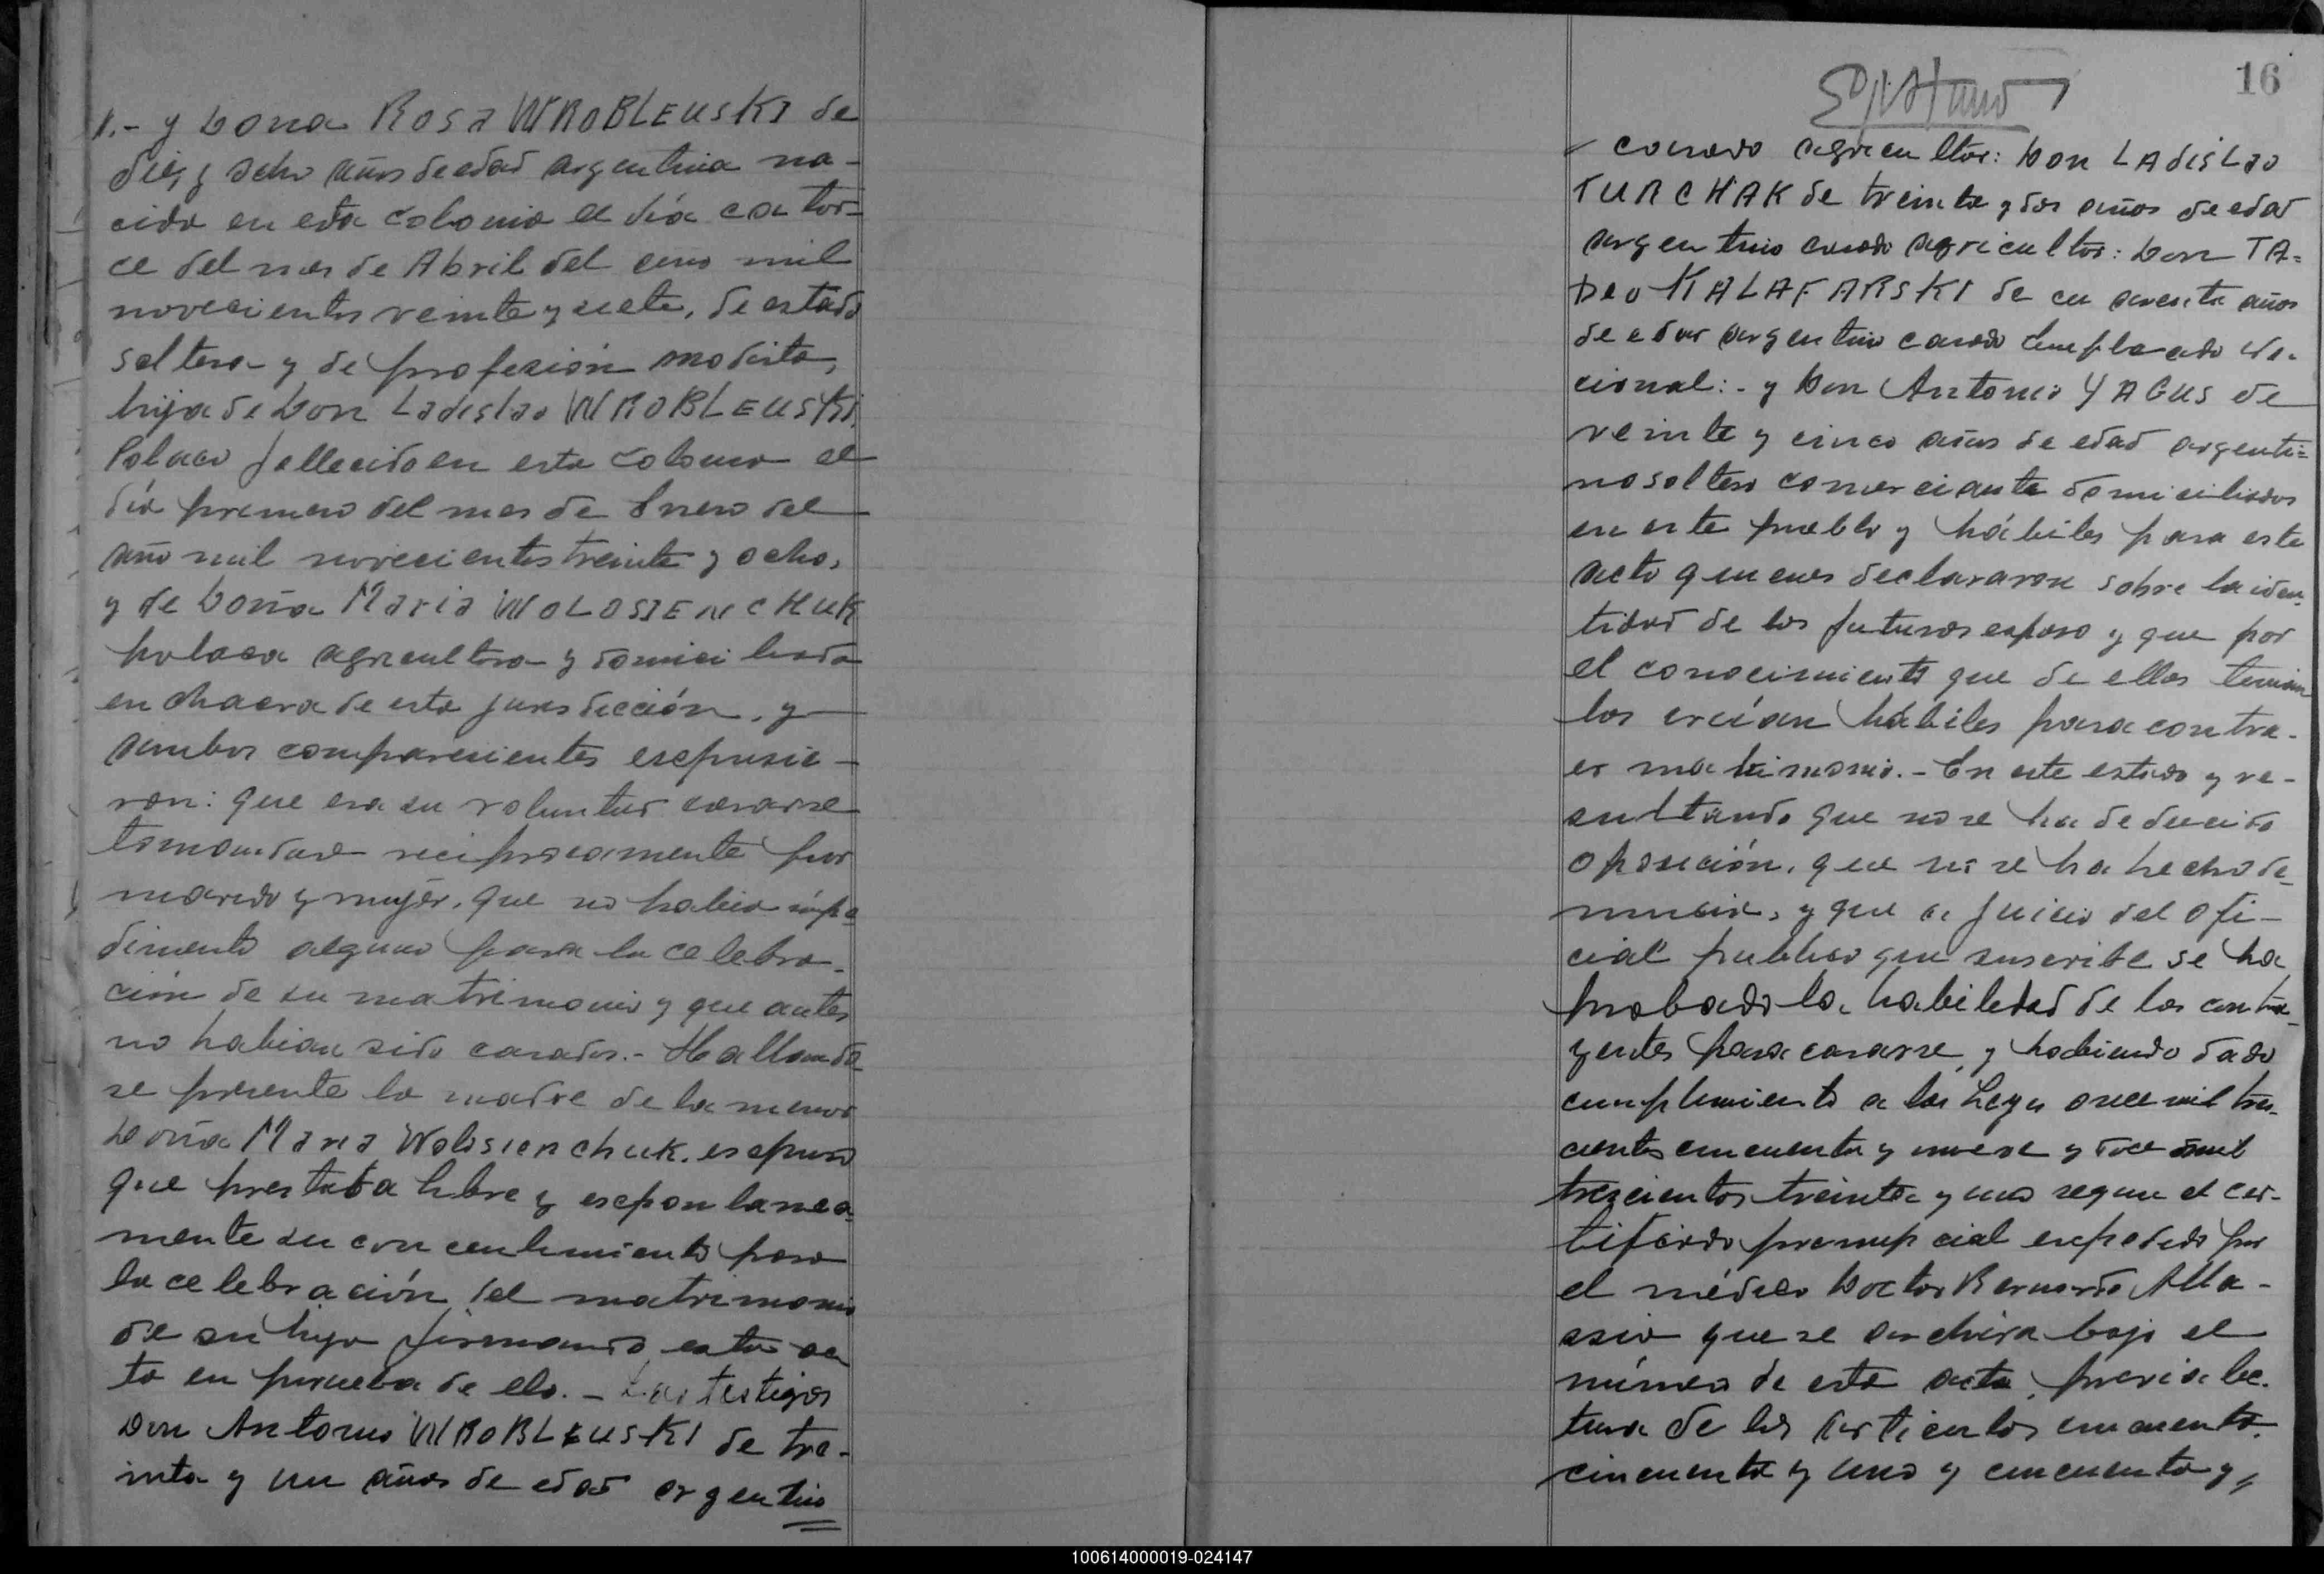 1.- y Doña Rosa WROBLEUSKI de
diez y ocho años de edad argentina na-
cida en esta colonia el día cator-
ce del mes de Abril del año mil
novecientos veinte y siete, de estado
soltera y de profesión modista,
hija de Don Ladislao WROBLEUSKI,
Polaco fallecido en esta colonia el
día primero del mes de Enero del
año mil novecientos treinta y ocho,
y de Doña Maria WOLOSIENCHUK
polaca agricultora y domiciliada
en chacra de esta jurisdicción, y
ambos comparecientes escpusie-
ron: que era su voluntad casarse
tomandose reciprocamente por
marido y mujér, que no habia impe
dimento alguno para la celebra-
ción de su matrimonio y que antes
no habian sido casados.- Hallando
se presente la madre de la menor
Doña Maria Wolosienchuk, escpuso
que prestaba libre y escpontanea-
mente su concentimiento para
la celebración del matrimonio
de su hija firmando esta ac
ta en prueba de elo.- Los testigos
Don Antonio WROBLEUSKI de tre-
inta y un años de edad argentino
16
casado agricultor: Don LAdisLao
TURCHAK de treinta y dos años de edad
argentino casado agricultor: Don TA=
Deo KALAFARSKI de cuarenta años
de edad argentino casado Empleado Na-
cional:- y Don Antonio YAGUS de
veinte y cinco años de edad argenti=
no soltero comerciante domiciliados
en este pueblo y hábiles para este
acto quienes declararon sobre la iden-
tidad de los futuros esposo y que por
el conocimiento que de ellos tenian
los creían hábiles para contra-
er matrimonio.- En este estado y re-
sultando que no se ha deducido
oposición, que no se ha hecho de-
nuncia, y que a juicio del ofi-
cial publico que suscribe se ha
probado la habilidad de los contra-
yentes para casarse, y habiendo dado
cumplimiento a las Leyes once mil tres-
cientos cincuenta y nueve y doce mil
trescientos treinta y uno segun el cer-
tificado prenupcial escpedido por
el médico Doctor Bernardo Alla-
sia que se archiva bajo el
número de esta acta, previa lec-
tura de los articulos cincuenta,
cincuenta y uno y cincuenta y
100614000019-024147